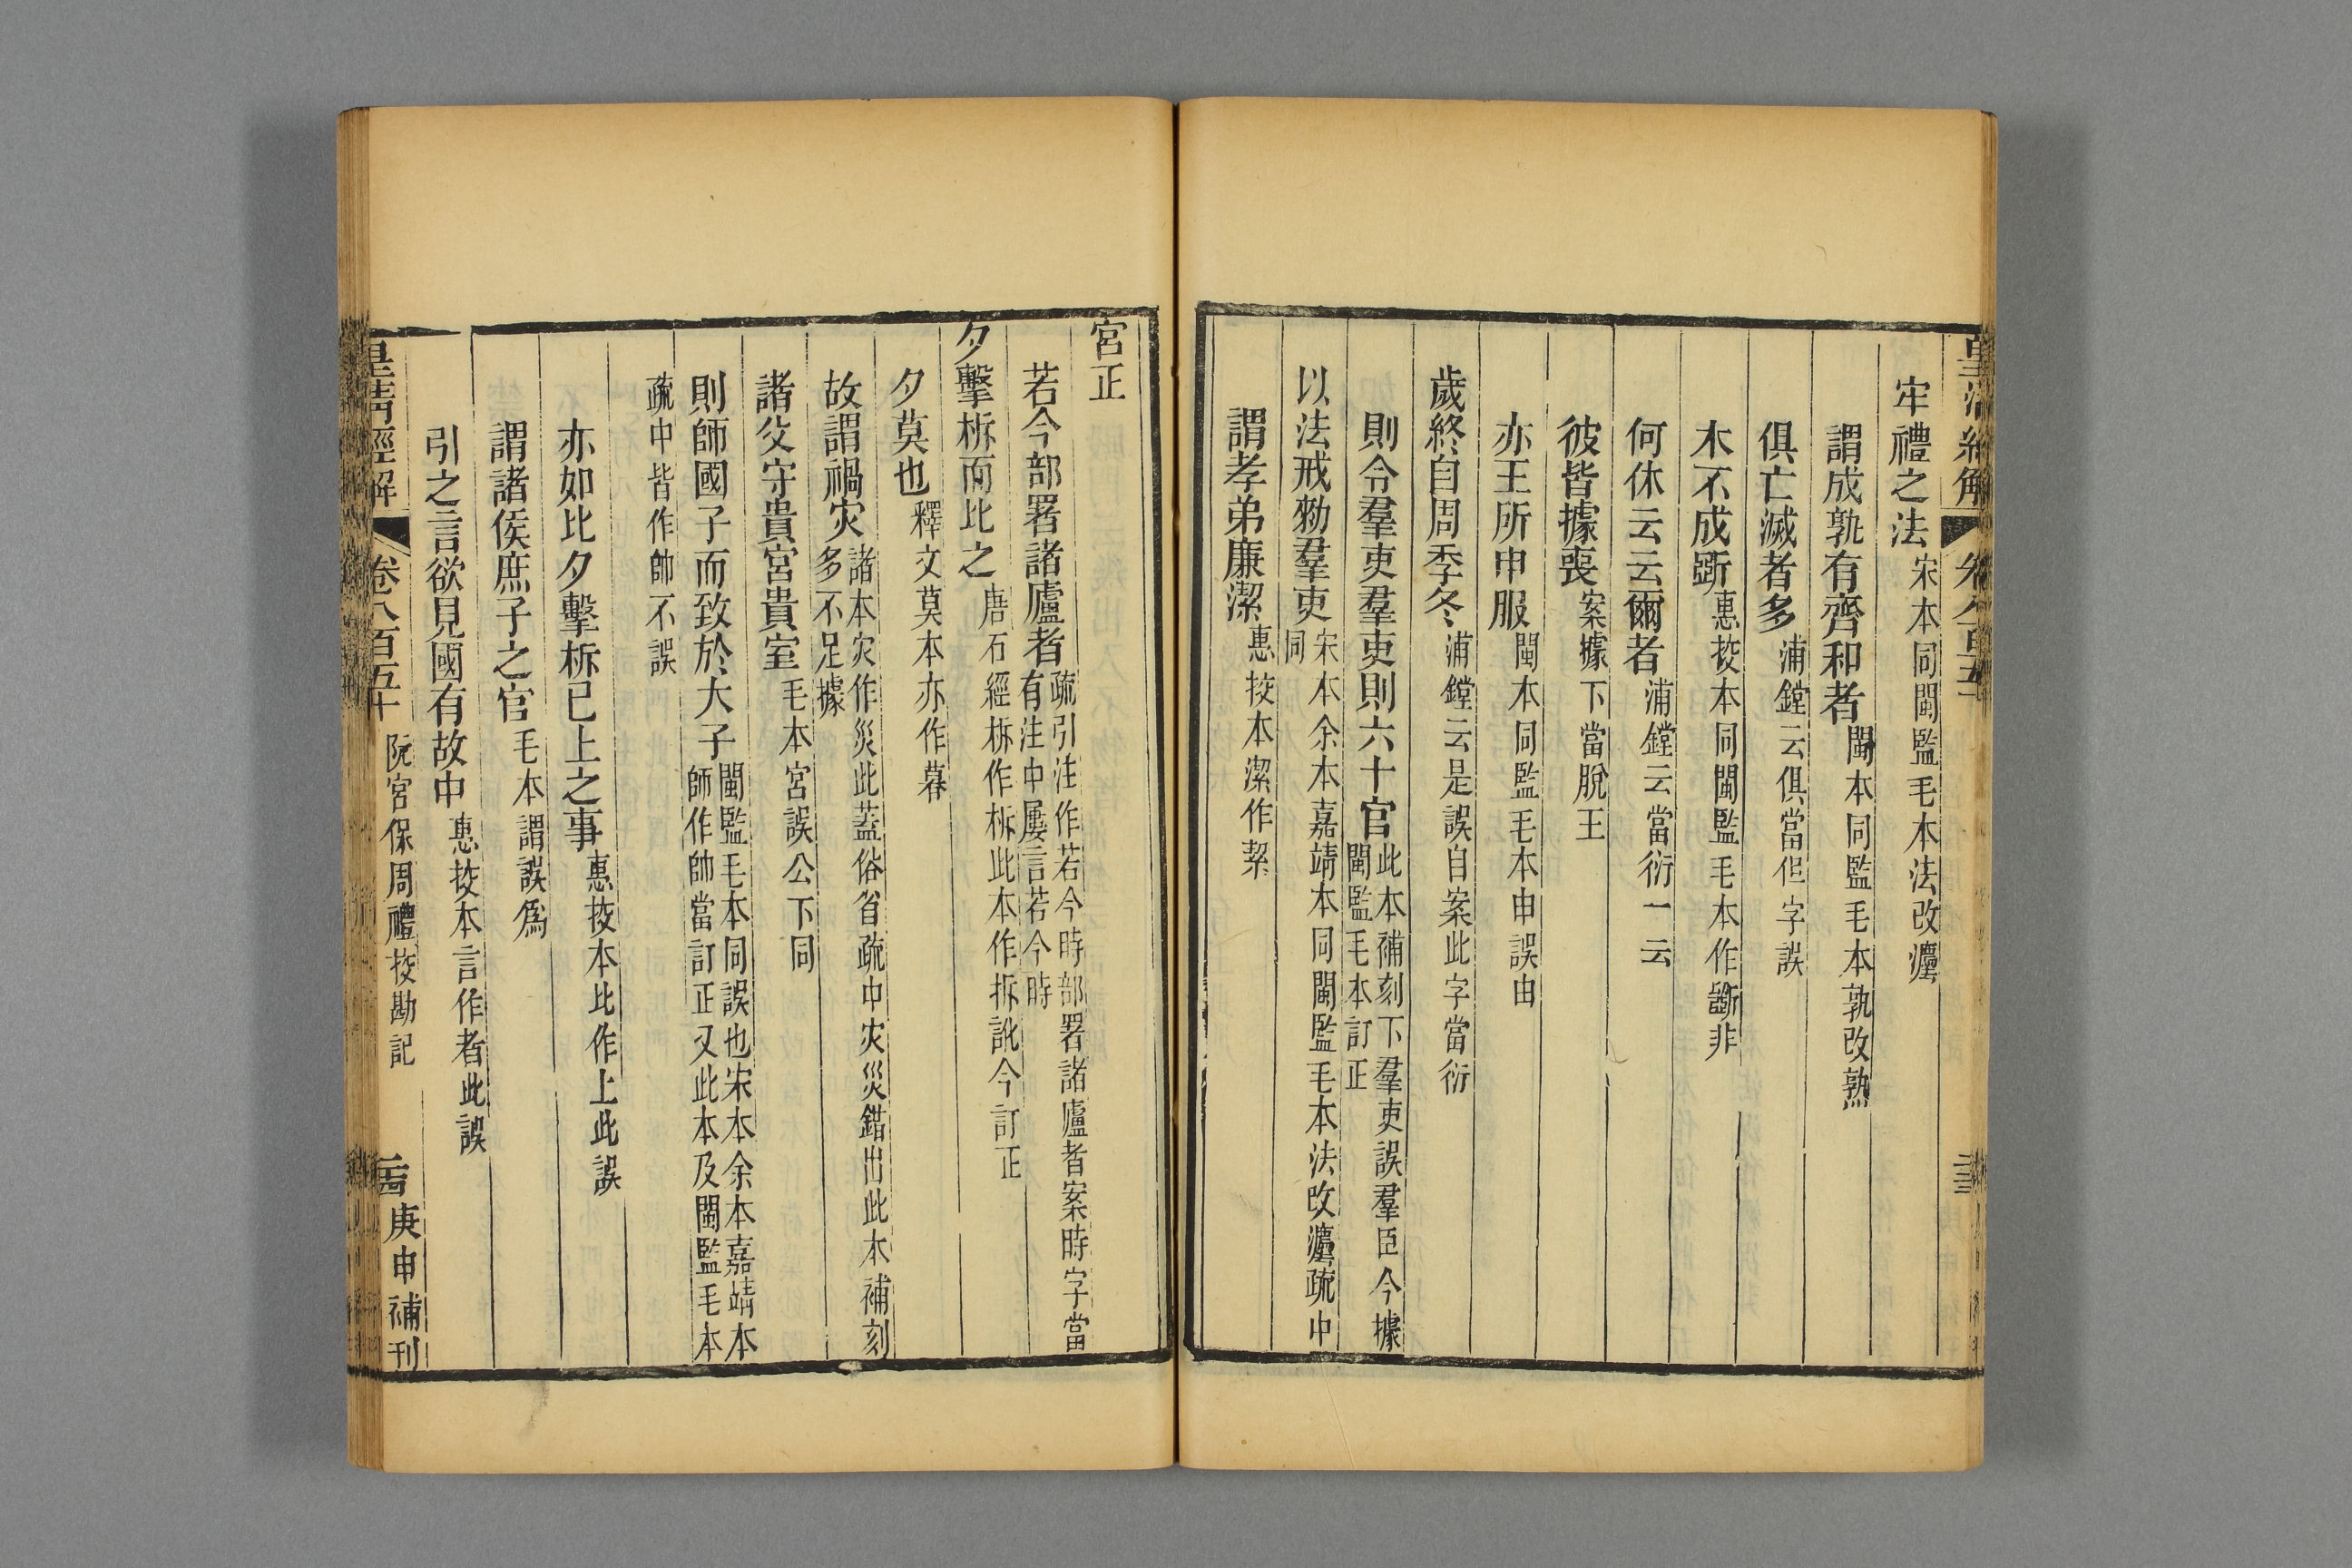 皇清經解
卷八百五十
牢禮之法宋本同閩監毛本法改灋
謂成孰有齊和者閩本同監毛本孰改熟
俱亡滅者多浦鏜云俱當但字誤
木不成斲惠挍本同閩監毛本作斵非
何休云云爾者浦鏜云當衍一云
彼皆據喪案據下當脫王
亦王所申服閩本同監毛本申誤由
歲終自周季冬浦鏜云是誤自案此字當衍
則令羣吏羣吏則六十官此本補刻下羣吏誤羣臣今據
閩監毛本訂正
以法戒勑羣吏宋本余本嘉靖本同閩監毛本法改灋疏中
同
謂孝弟廉潔惠挍本潔作絜
宮正
若今部署諸廬者疏引注作若今時部署諸廬者案時字當
有注中屢言若今時
夕擊柝而比之唐石經柝作㭊此本作拆訛今訂正
夕莫也釋文莫本亦作暮
故謂禍灾諸本灾作災此蓋俗省疏中灾災錯出此本補刻
多不足據
諸父守貴宮貴室毛本宮誤公下同
則師國子而致於大子閩監毛本同誤也宋本余本嘉靖本
師作帥當訂正又此本及閩監毛本
疏中皆作帥不誤
亦如比夕擊柝已上之事惠挍本比作上此誤
謂諸侯庶子之官毛本謂誤爲
引之言欲見國有故中惠挍本言作者此誤
皇清經解
卷八百五十
阮宮保周禮挍勘記
庚申補刊